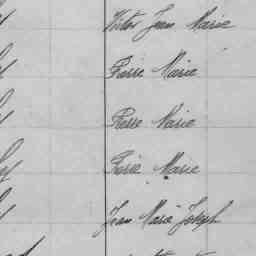 Victor Jean Marie
Pierre Marie
Pierre Marie
Pierre Marie
Jean Marie Joseph